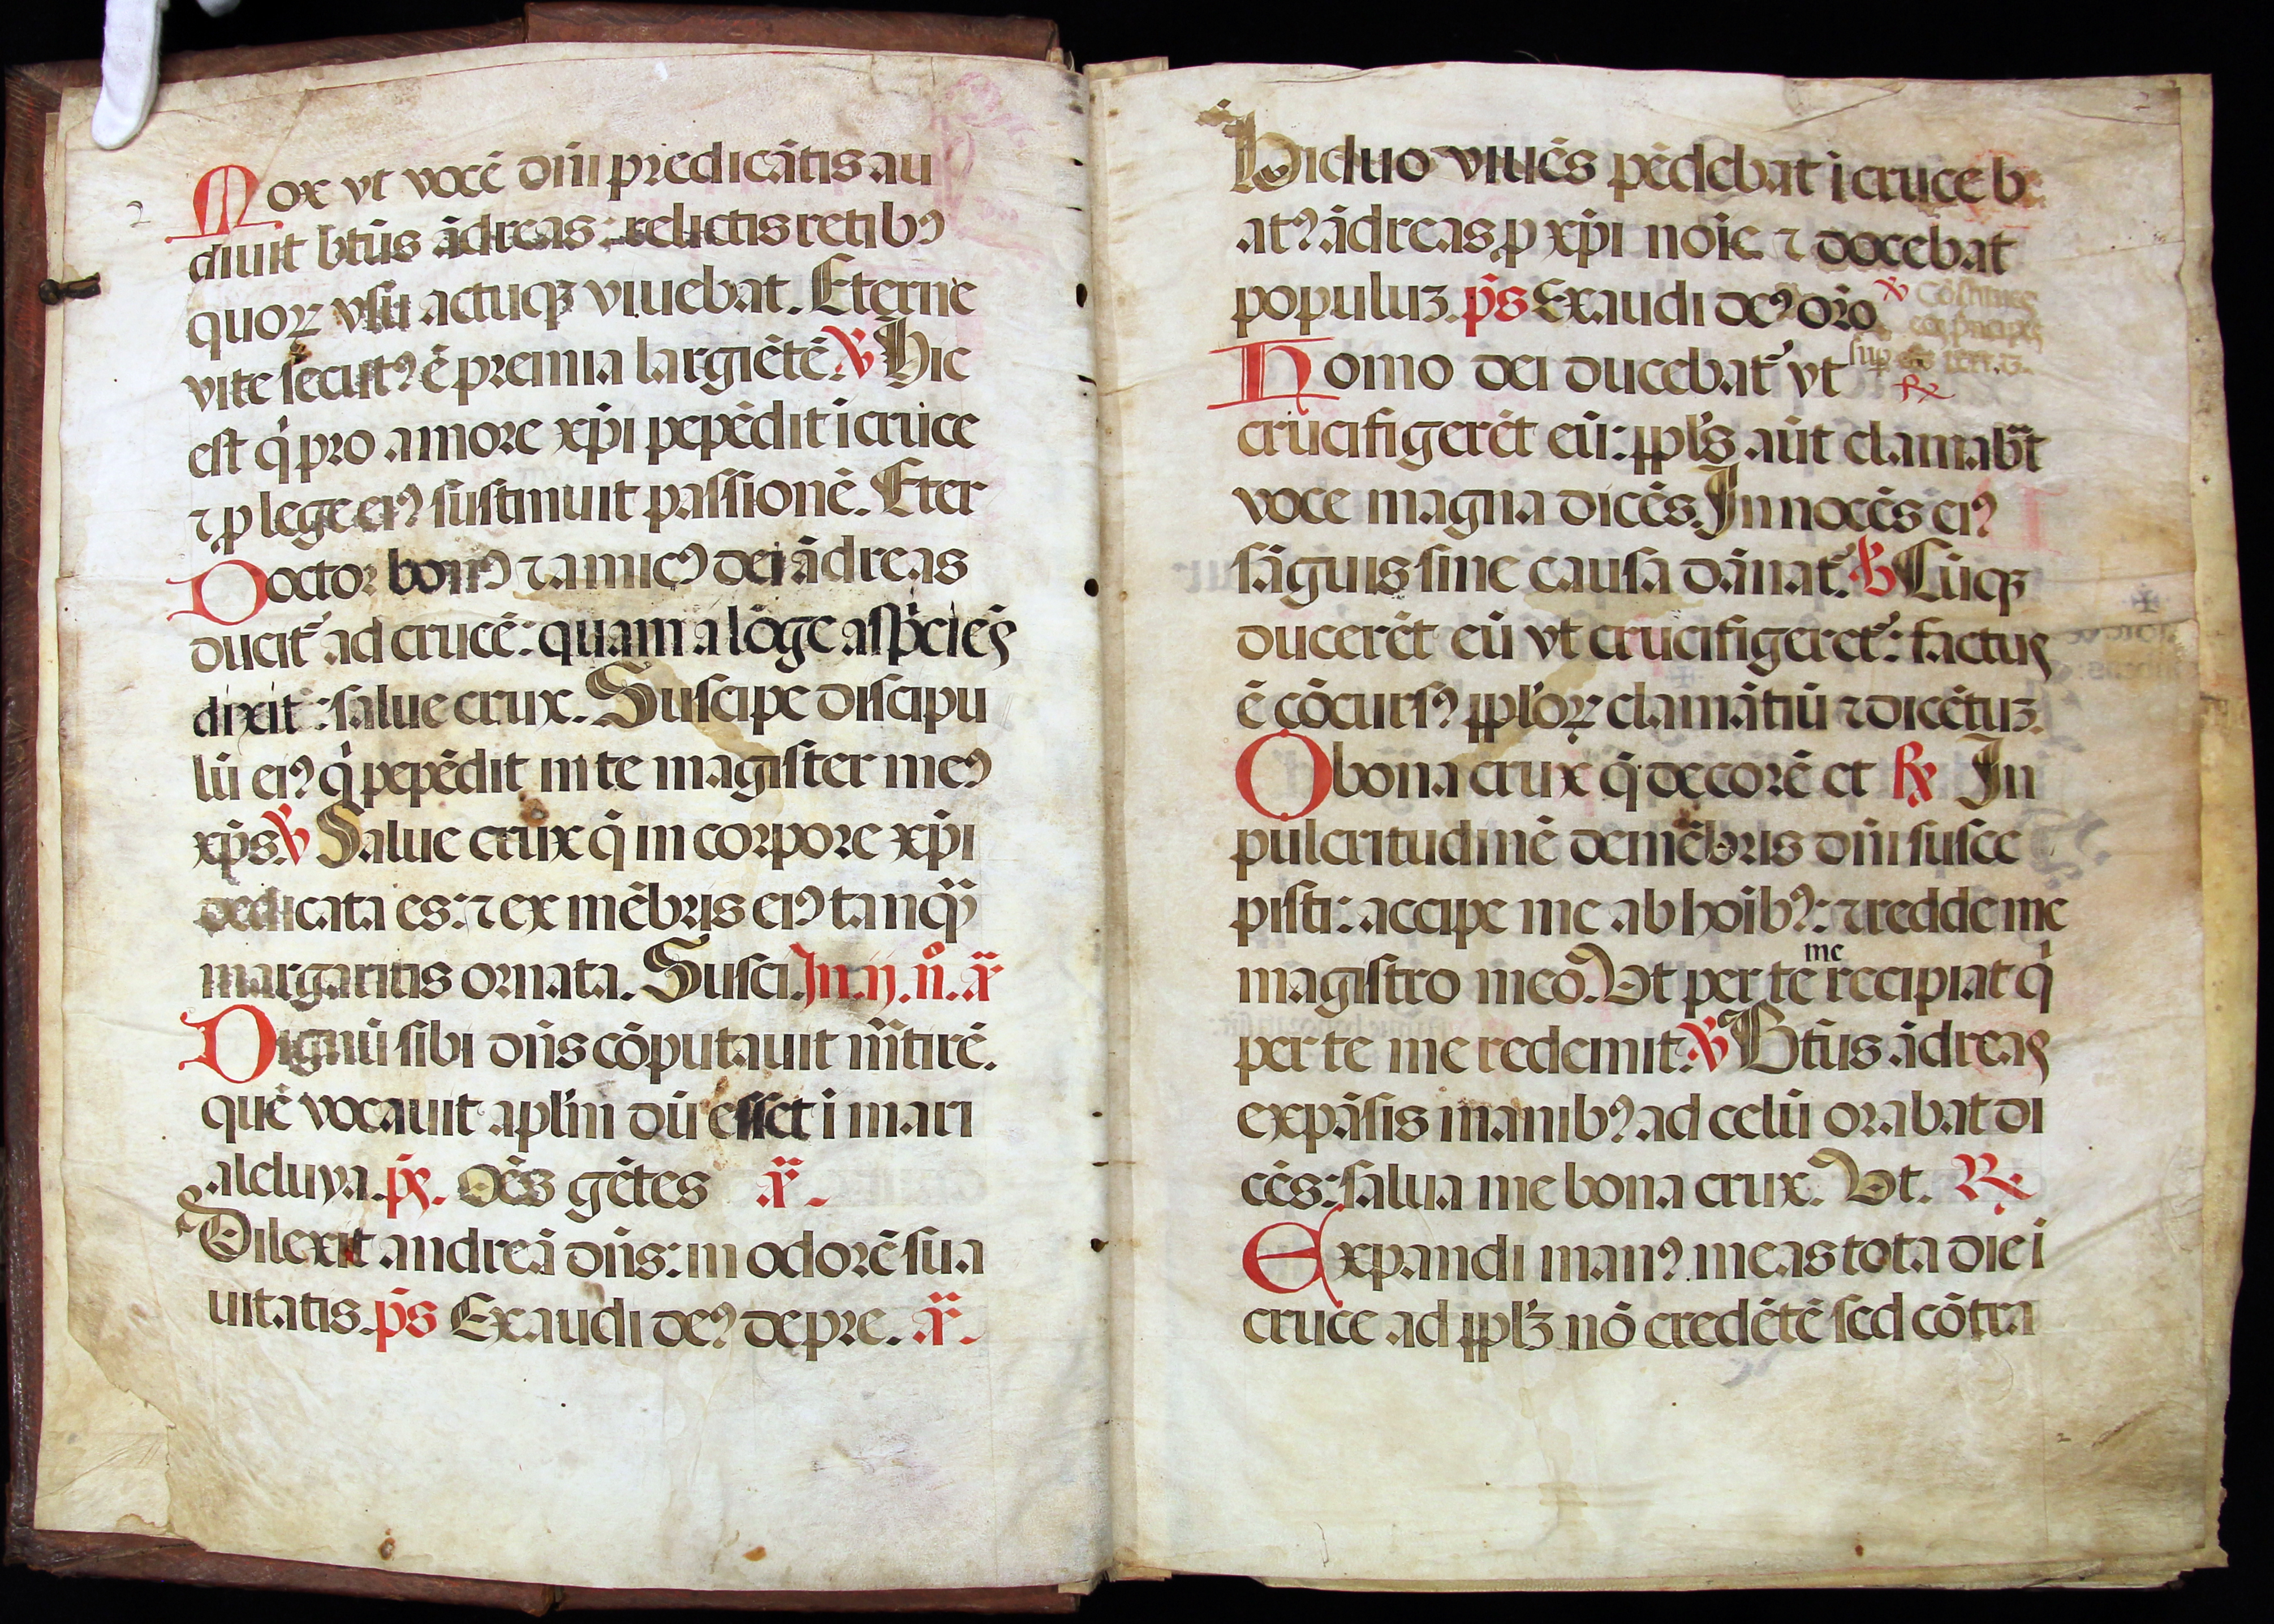 2
Mox vt vocē dn̄i predicātis au
diuit btūs ādreas: relictis retibꝰ
quoꝝ vsu actuqꝫ viuebat. Eterne
vite secutꝰ ē premia largiētē. ℣ Hic
est q̇ pro amore xp̄i pepēdit i cruce
⁊ ꝓ lege eiꝰ sustinuit passionē. Eter
Doctor bonꝰ ⁊ amicꝰ dei ādreas
ducit᷑ ad crucē: quam a lōge aspiciēs
dixit: salue crux. Suscipe discipu
lū eiꝰ q̇ pepēdit in te magister meꝰ
xp̄s. ℣ Salue crux q̄ in corpore xp̄i
dedicata es: ⁊ ex mēbris eiꝰ tanqᷓ
margaritis ornata. Susci. Jn .ij. n̊. añ
Dignū sibi dn̄s cōputauit mr̄tirē.
quē vocauit apl'm dū esset i mari
aleluya. ps̄. Oēs gētes añ.
Dilexit andreā dn̄s: in odorē sua
uitatis. ps̄ Exaudi deꝰ depre. añ.
2
Biduo viuēs pēdebat i cruce b
atꝰ ādreas ꝓ xp̄i noīe ⁊ docebat
populuꝫ. ps̄ Exaudi deꝰ orō ℣ Cōstitues
eos prīcipes
sup oēs terrā.
Homo dei ducebat᷑ vt ℟
crucifigerēt eū: ppl's aūt clamabat
voce magna dicēs. Jnnocēs eiꝰ
sāguis sine causa dānat᷑. ℣ Cūqꝫ
ducerēt eū vt crucifigeret᷑: factus
ē cōcursꝰ ppl'oꝝ clamātiū ⁊ dicētiuꝫ.
O bona crux q̄ decorē et ℟ Jn
pulcritudinē de mēbris dn̄i susce
pisti: accipe me ab hoībꝰ: ⁊ redde me
me
magistro meo. Vt per te recipiat q̇
per te me redemit. ℣ Btūs ādreas
expāsis manibꝰ ad celū orabat di
cēs: salua me bona crux. Vt. ℟
Expandi manꝰ meas tota die i
cruce ad ppl'ꝫ nō credētē sed cōtra
2